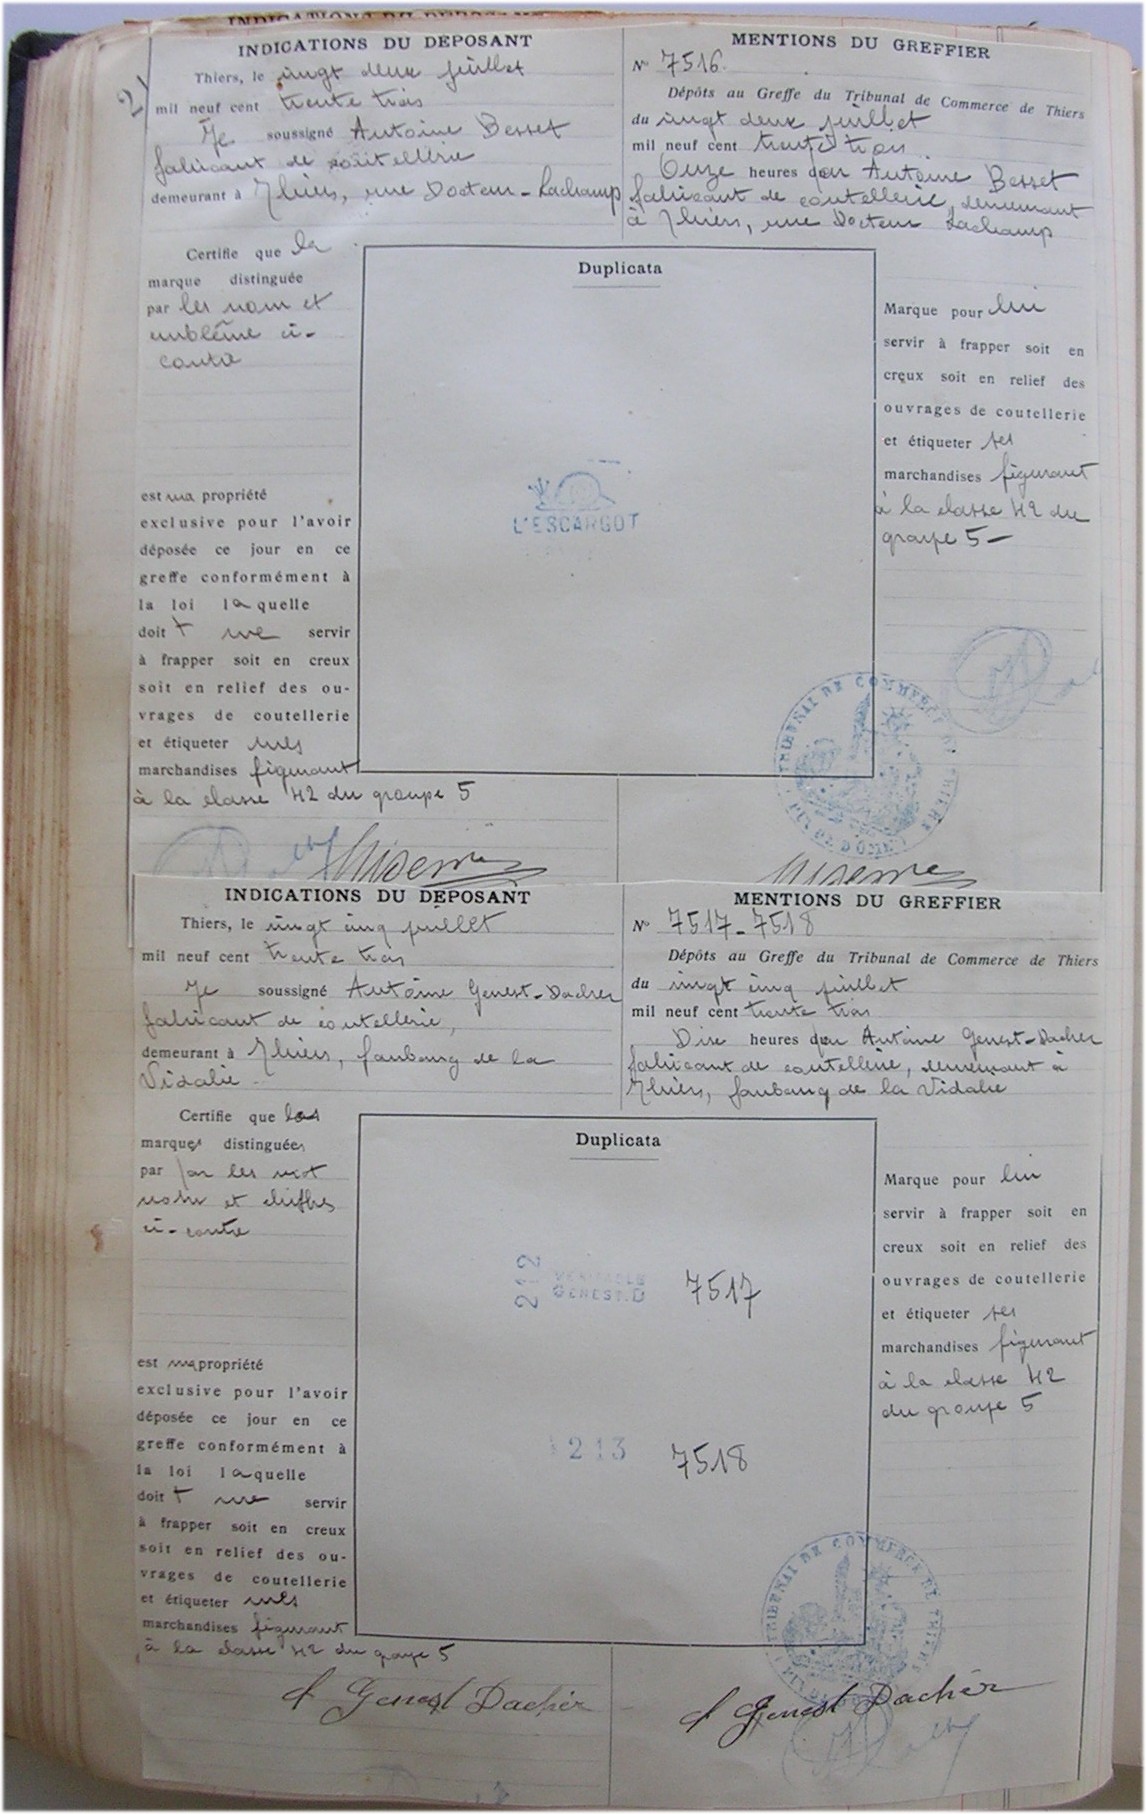 INDICATIONS DU DEPOSANT
Thiers, le vingt deux juillet
mil neuf cent trente trois
Je soussigné Antoine Besset
fabricant de coutellerie
demeurant à Thiers, rue Docteur-Lachamp
Certifie que la
marque distinguée
par les nom et
emblême ci-
contre
est ma propriété
exclusive pour l'avoir
déposée ce jour en ce
greffe conformément à
la loi laquelle
doit me servir
à frapper soit en creux
soit en relief des ou-
vrages de coutellerie
et étiqueter mes
marchandises figurant
à la classe 42 du groupe 5
MENTIONS DU GREFFIER
N° 7516.
Dépôts au Greffe du Tribunal de Commerce de Thiers
du vingt deux juillet
mil neuf cent trente trois
Onze heures par Antoine Besset
fabricant de coutellerie, demeurant
à Thiers, rue Docteur Lachamp
Duplicata
L'ESCARGOT
Marque pour lui
servir à frapper soit en
creux soit en relief des
ouvrages de coutellerie
et étiqueter ses
marchandises figurant
à la classe 42 du
groupe 5-
TRIBUNAL DE COMMERCE DE THIERS
PUY DE DÔME
INDICATIONS DU DÉPOSANT
Thiers, le vingt cinq juillet
mil neuf cent trente trois
Je soussigné Antoine Genest-Dacher
fabricant de coutellerie,
demeurant à Thiers, faubourg de la
Vidalie
Certifie que les
marques distinguées
par par les mot
nom et chiffres
ci-contre
est ma propriété
exclusive pour l'avoir
déposée ce jour en ce
greffe conformément à
la loi laquelle
doit me servir
à frapper soit en creux
soit en relief des ou-
vrages de coutellerie
et étiqueter mes
marchandises figurant
à la classe 42 du groupe 5
A Genest Dachér
MENTIONS DU GREFFIER
N° 7517-7518
Dépôts au Greffe du Tribunal de Commerce de Thiers
du vingt cinq juillet
mil neuf cent trente trois
Dix heures par Antoine Genest-Dacher
fabricant de coutellerie, demeurant à
Thiers, faubourg de la Vidalie
Duplicata
212
VERITABLE
GENEST.D
7517
213
7518
Marque pour lui
servir à frapper soit en
creux soit en relief des
ouvrages de coutellerie
et étiqueter ses
marchandises figurant
à la classe 42
du groupe 5
TRIBUNAL DE COMMERCE DE THIERS
A Genest Dachér